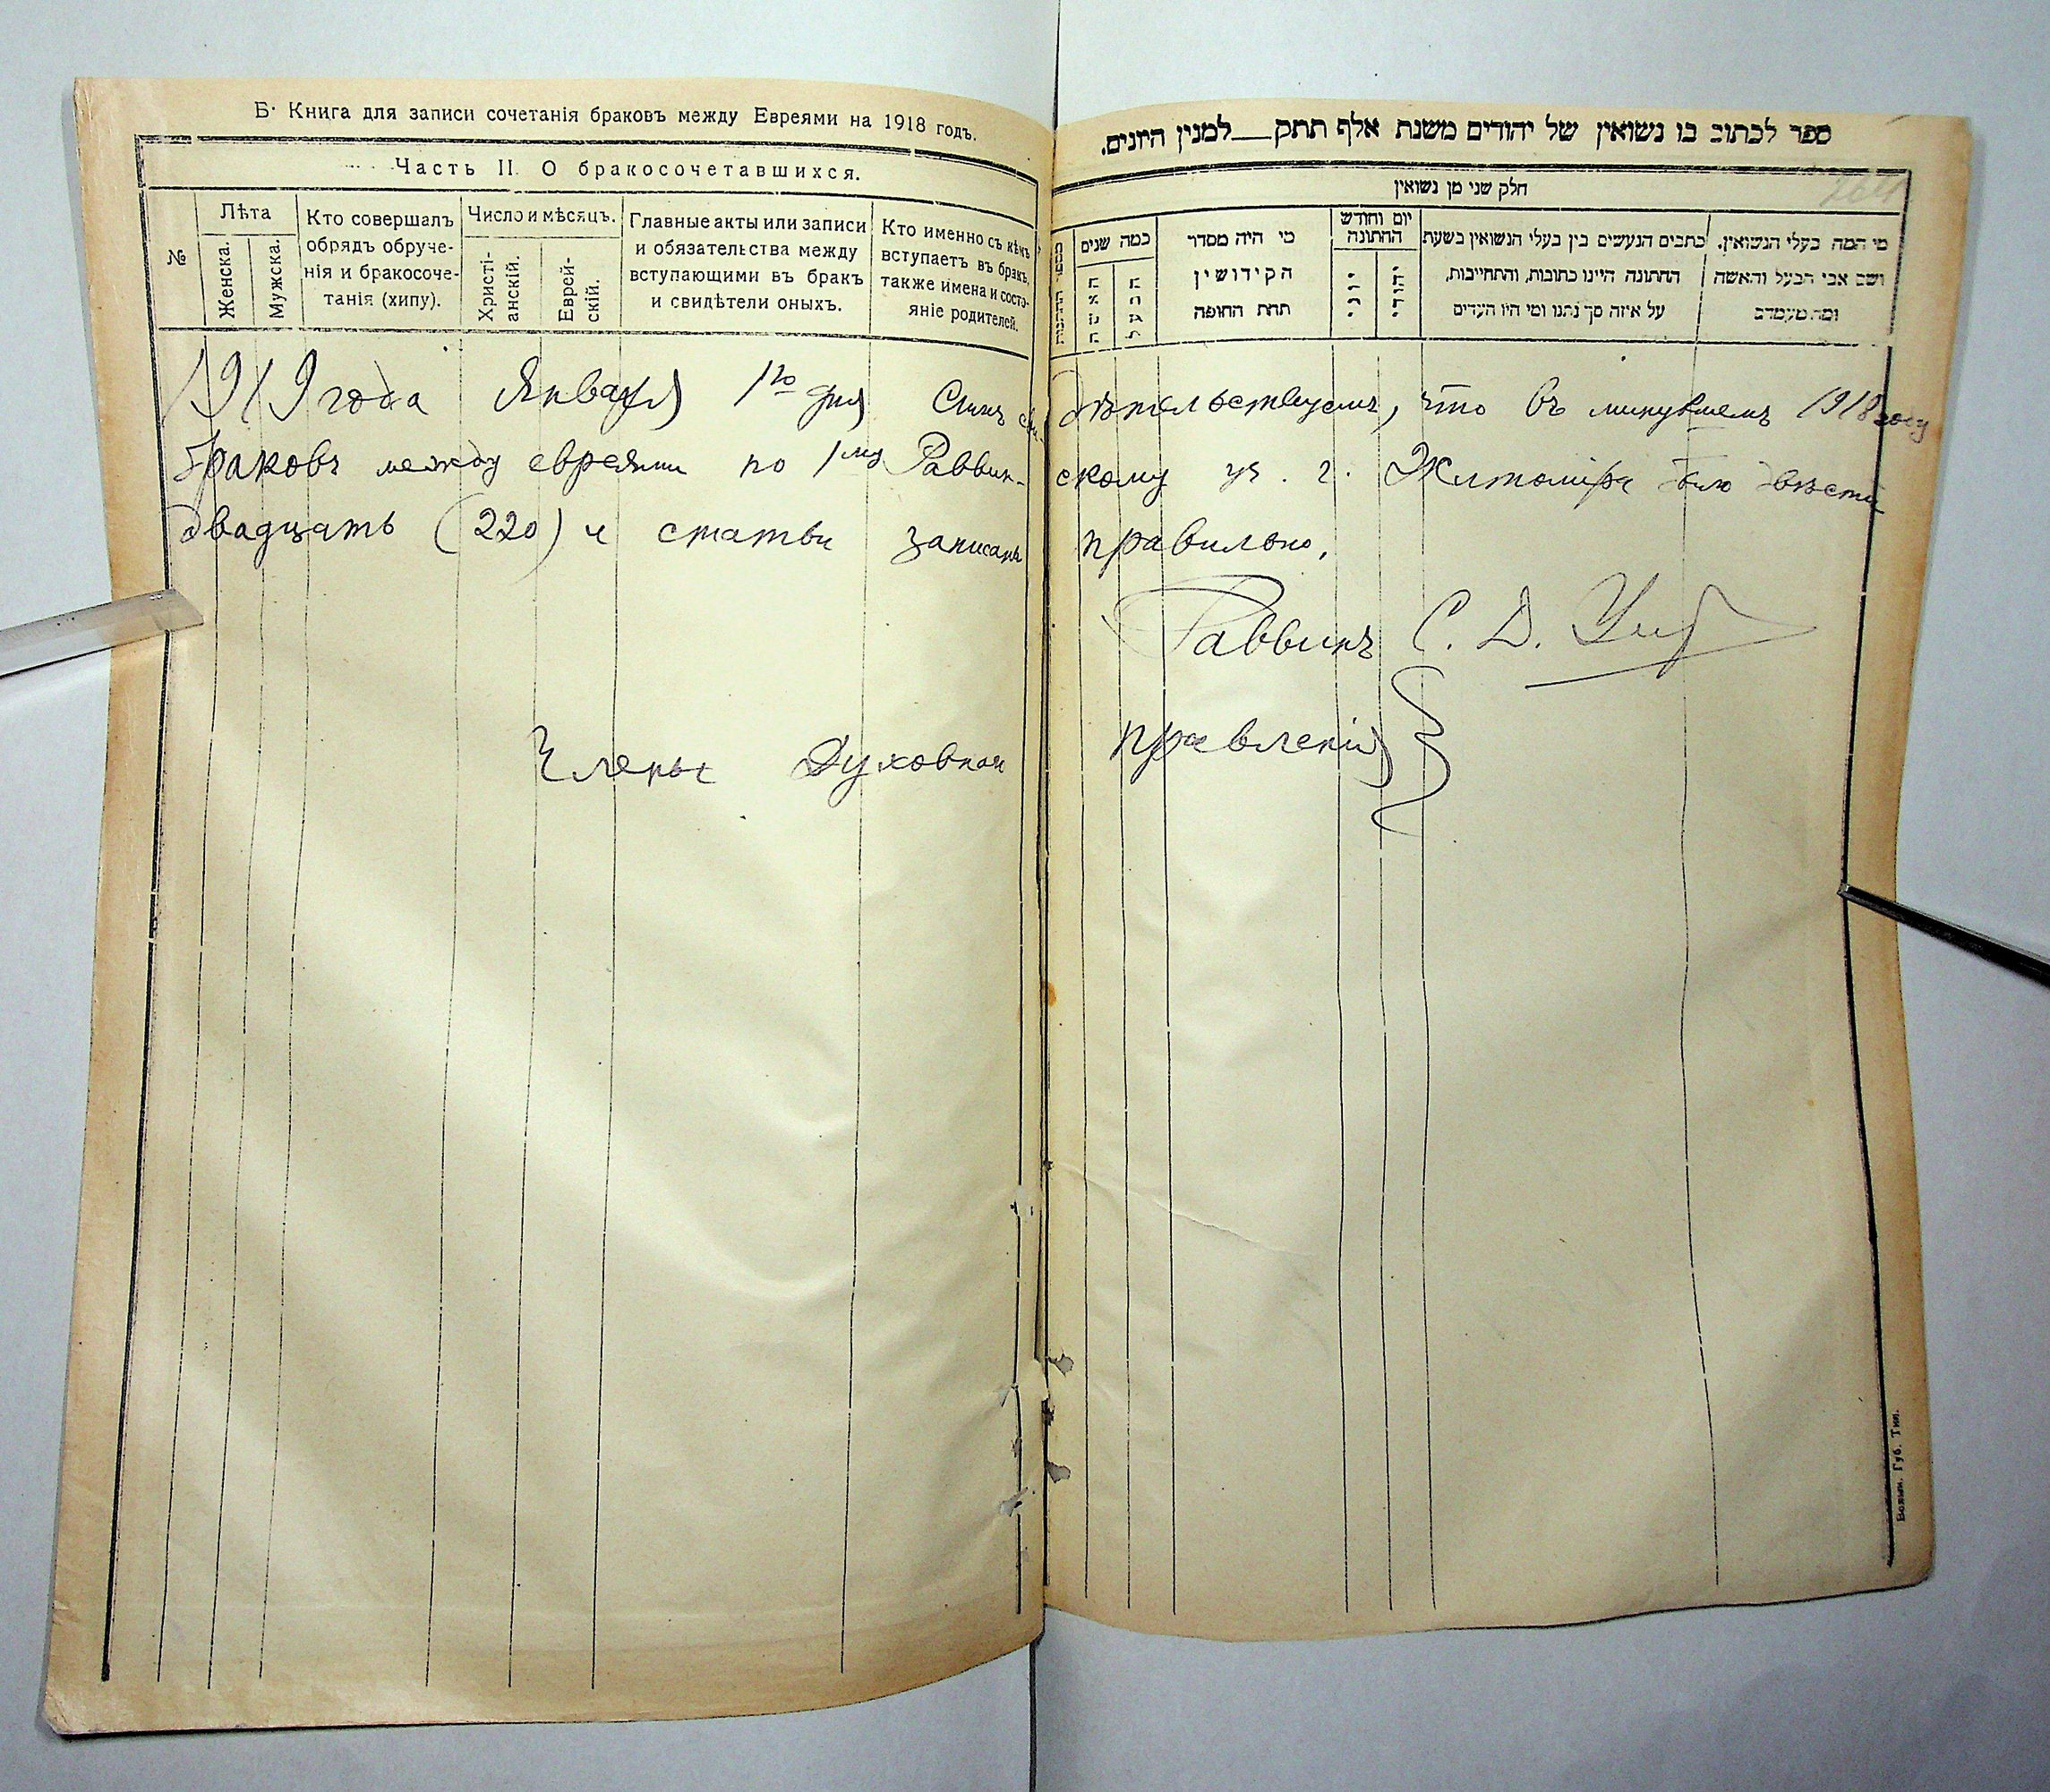 Б. Книга для записи сочетанія браковъ между Евреями на 1918 годъ.
Часть II. О бракосочетавшихся.
№
Лѣта
Женска.
Мужска.
Кто совершалъ
обрядъ обруче-
нія и бракосоче-
танія (хипу).
Число и мѣсяцъ.
Христі-
анскій.
Еврей-
скій.
Главные акты или записи
и обязательства между
вступающими въ бракъ
и свидѣтели оныхъ.
Кто именно съ кѣмъ
вступаетъ въ бракъ,
также имена и состо-
яніе родителей.
ספר לכתוב בו נשואין של יהודים משנת אלף תתק__למנין היונים.
חלק שני מן נשואין
כמה שנים
האשה
הבעל
מי היה מסדר
הקידושין
תחת החופה
יום וחודש
החתונה
יוני
יהודי
כתבים הנעשים בין בעלי הנשואין בשעת
החתונה היינו כתובות, והתחייבות,
על איזה סך נתנו ומי היו העדים
מי המה בעלי הנשואין,
ושם אבי הבעל והאשה
ומה מעמדם
1919 года Января 1го дня Симъ сви- дѣтельствуемъ, что въ минувшемъ 1918 году
браковъ между евреями по 1му Раввин- скому уч. г. Житоміра было двѣсти
двадцать (220) и статьи записаны правильно.
Раввинъ С. Д.
Члены Духовнаго правленія
Волын. Губ. Тип.